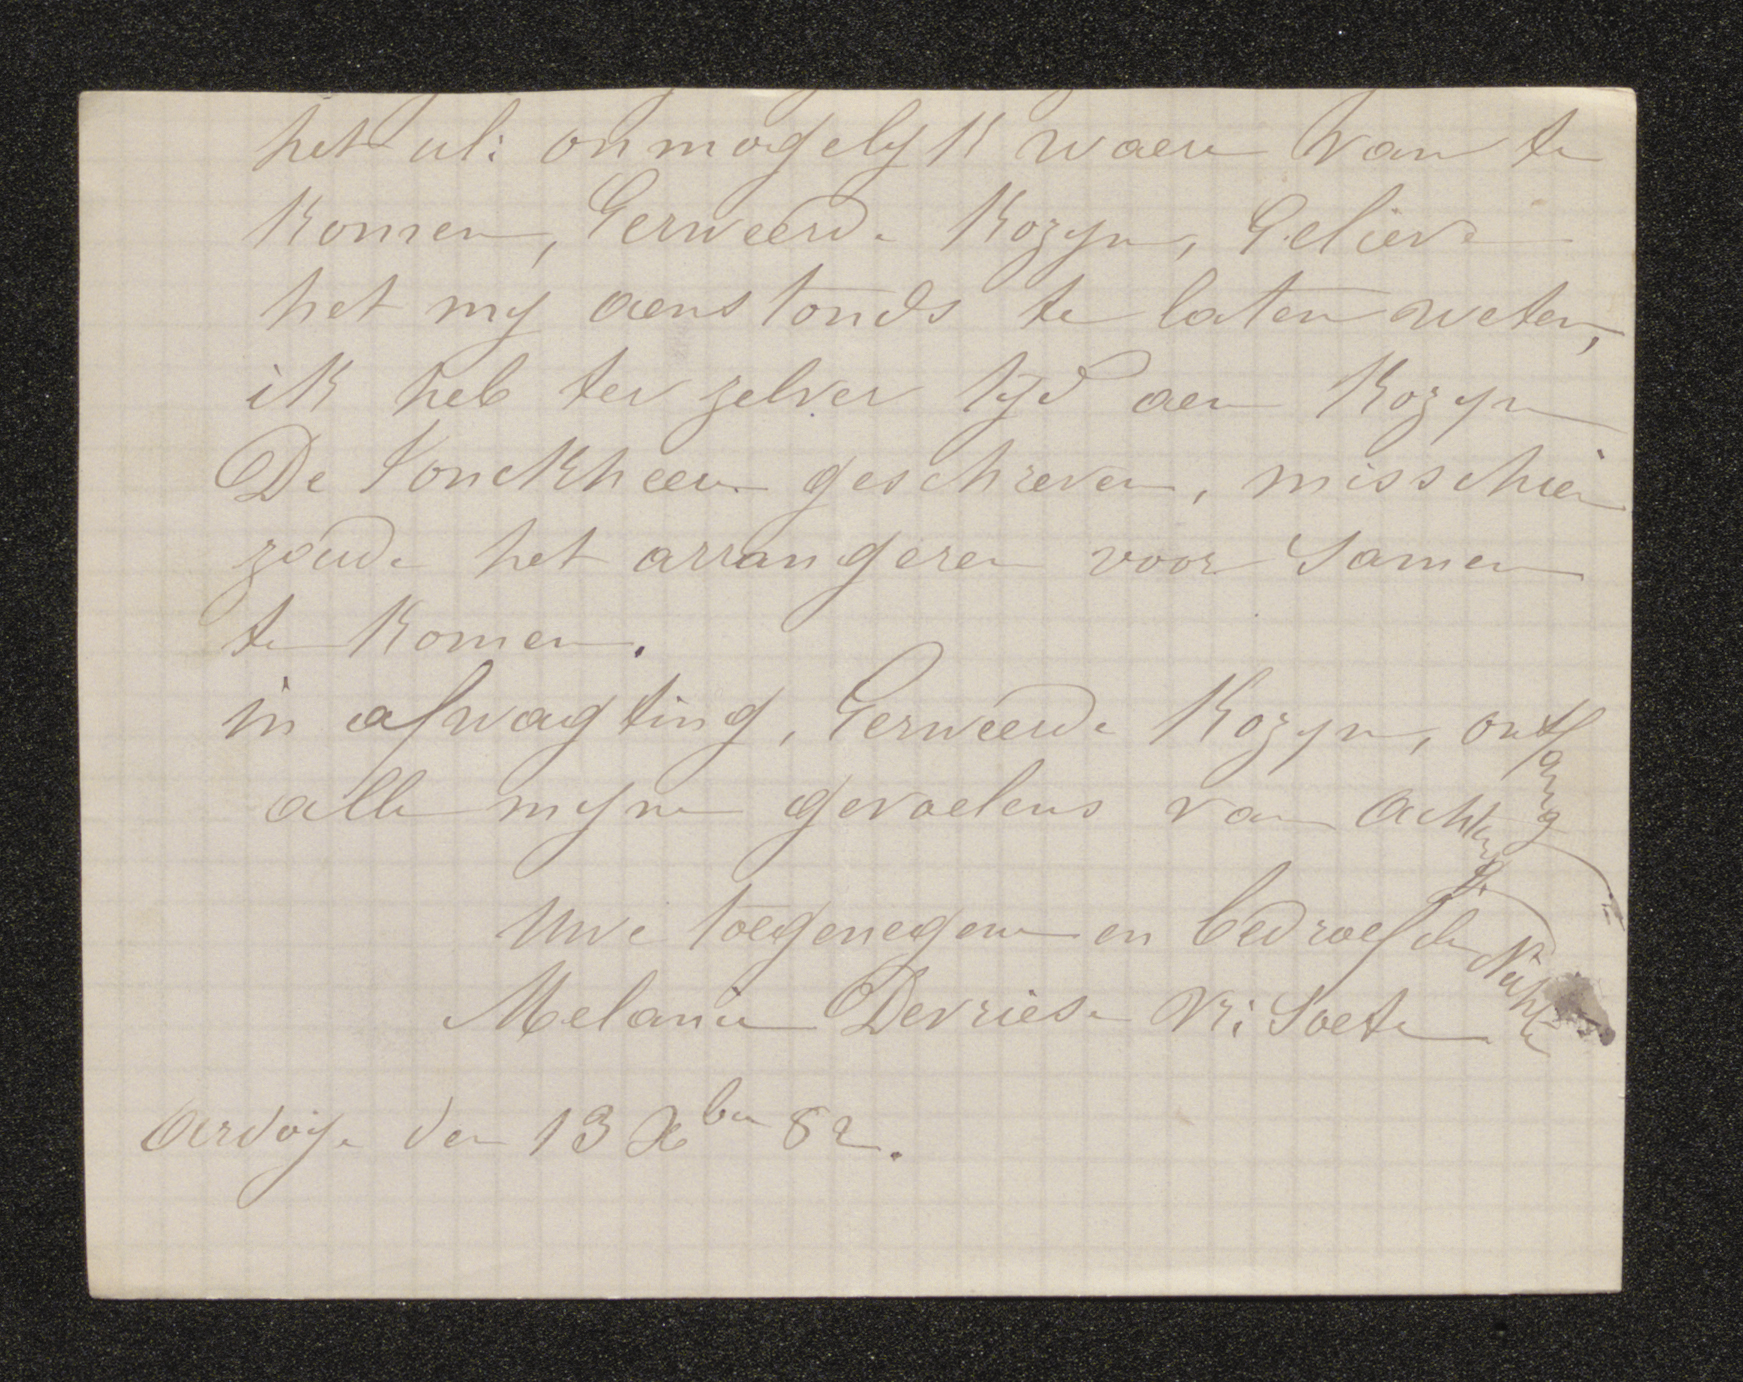 het ul: onmogelyk waere van te
komen, Gerweerde Kozyn, Gelieve
het my aenstonds te laten weten,
ik heb ter zelver tyd aen Kozyn
De Jonckheere geschreven, misschien
zoude het arrangeren voor Samen
te komen.
in afwagting, Gerweerde Kozyn, ontfang
alle myne gevoelens van achting.
Uwe toegenegene en bedroefde Nichte
Melanie Devriese Vr: Soete
Ardoye den 13 Xber 82.